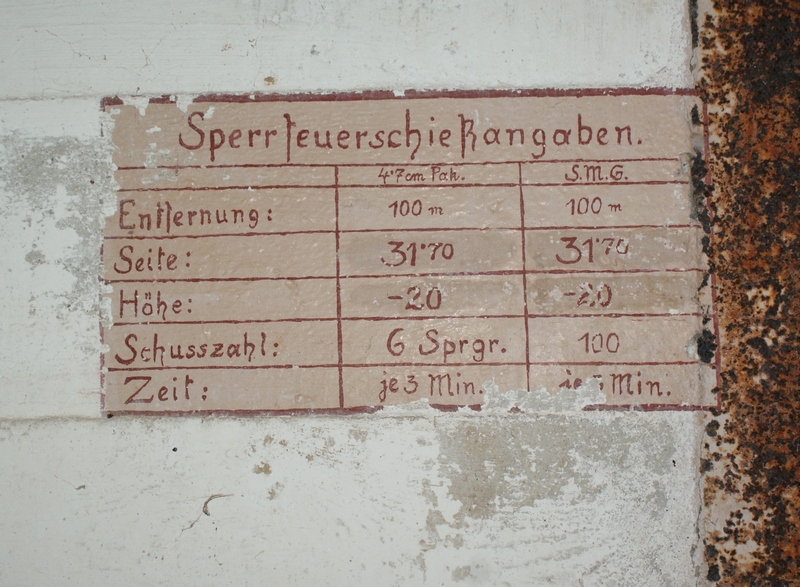 Sperrfeuerschießangaben.
4'7cm Pak. S.M.G.
Entfernung: 100 m 100 m
Seite: 31'70 31'70
Höhe: -20 -20
Schusszahl: 6 Sprgr. 100
Zeit: je 3 Min. je Min.